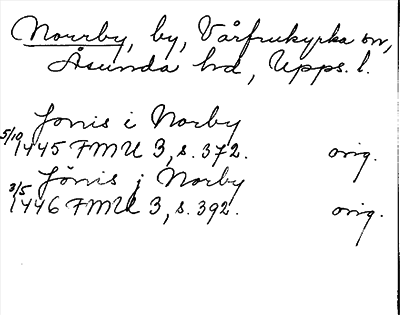 Norrby, by, Vårfrukyrka sn,
Åsunda hd, Upps. l.
Jonis i Norby
5/10 1445 FMU 3, s. 372. orig.
Jönis j Norby
3/5 1446 FMU 3, s. 392. orig.